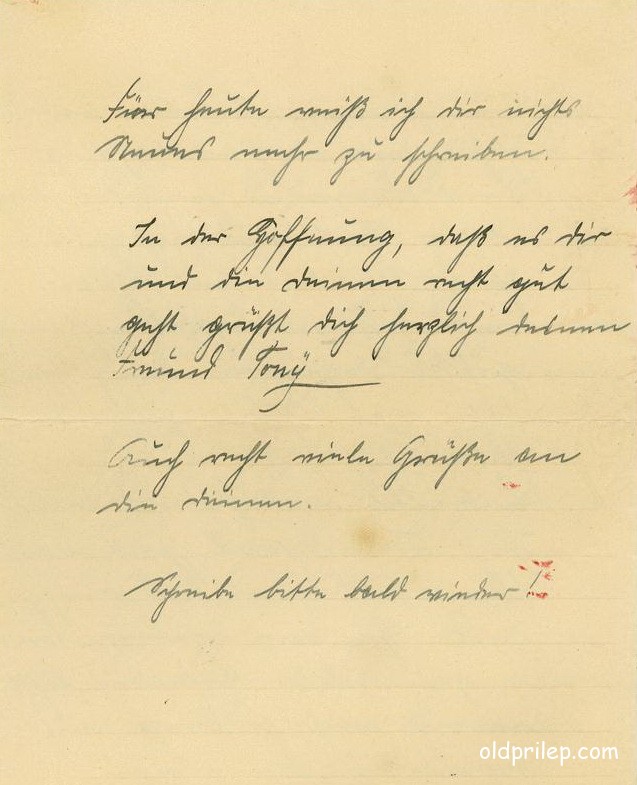 Für heute weiß ich dir nichts
Neues mehr zu schreiben.
In der Hoffnung, daß es dir
und die deinen recht gut
geht grüßt dich herzlich deinen
Freund Tony
Auch recht viele Grüße an
die deinen.
Schreibe bitte bald wieder!
oldprilep.com